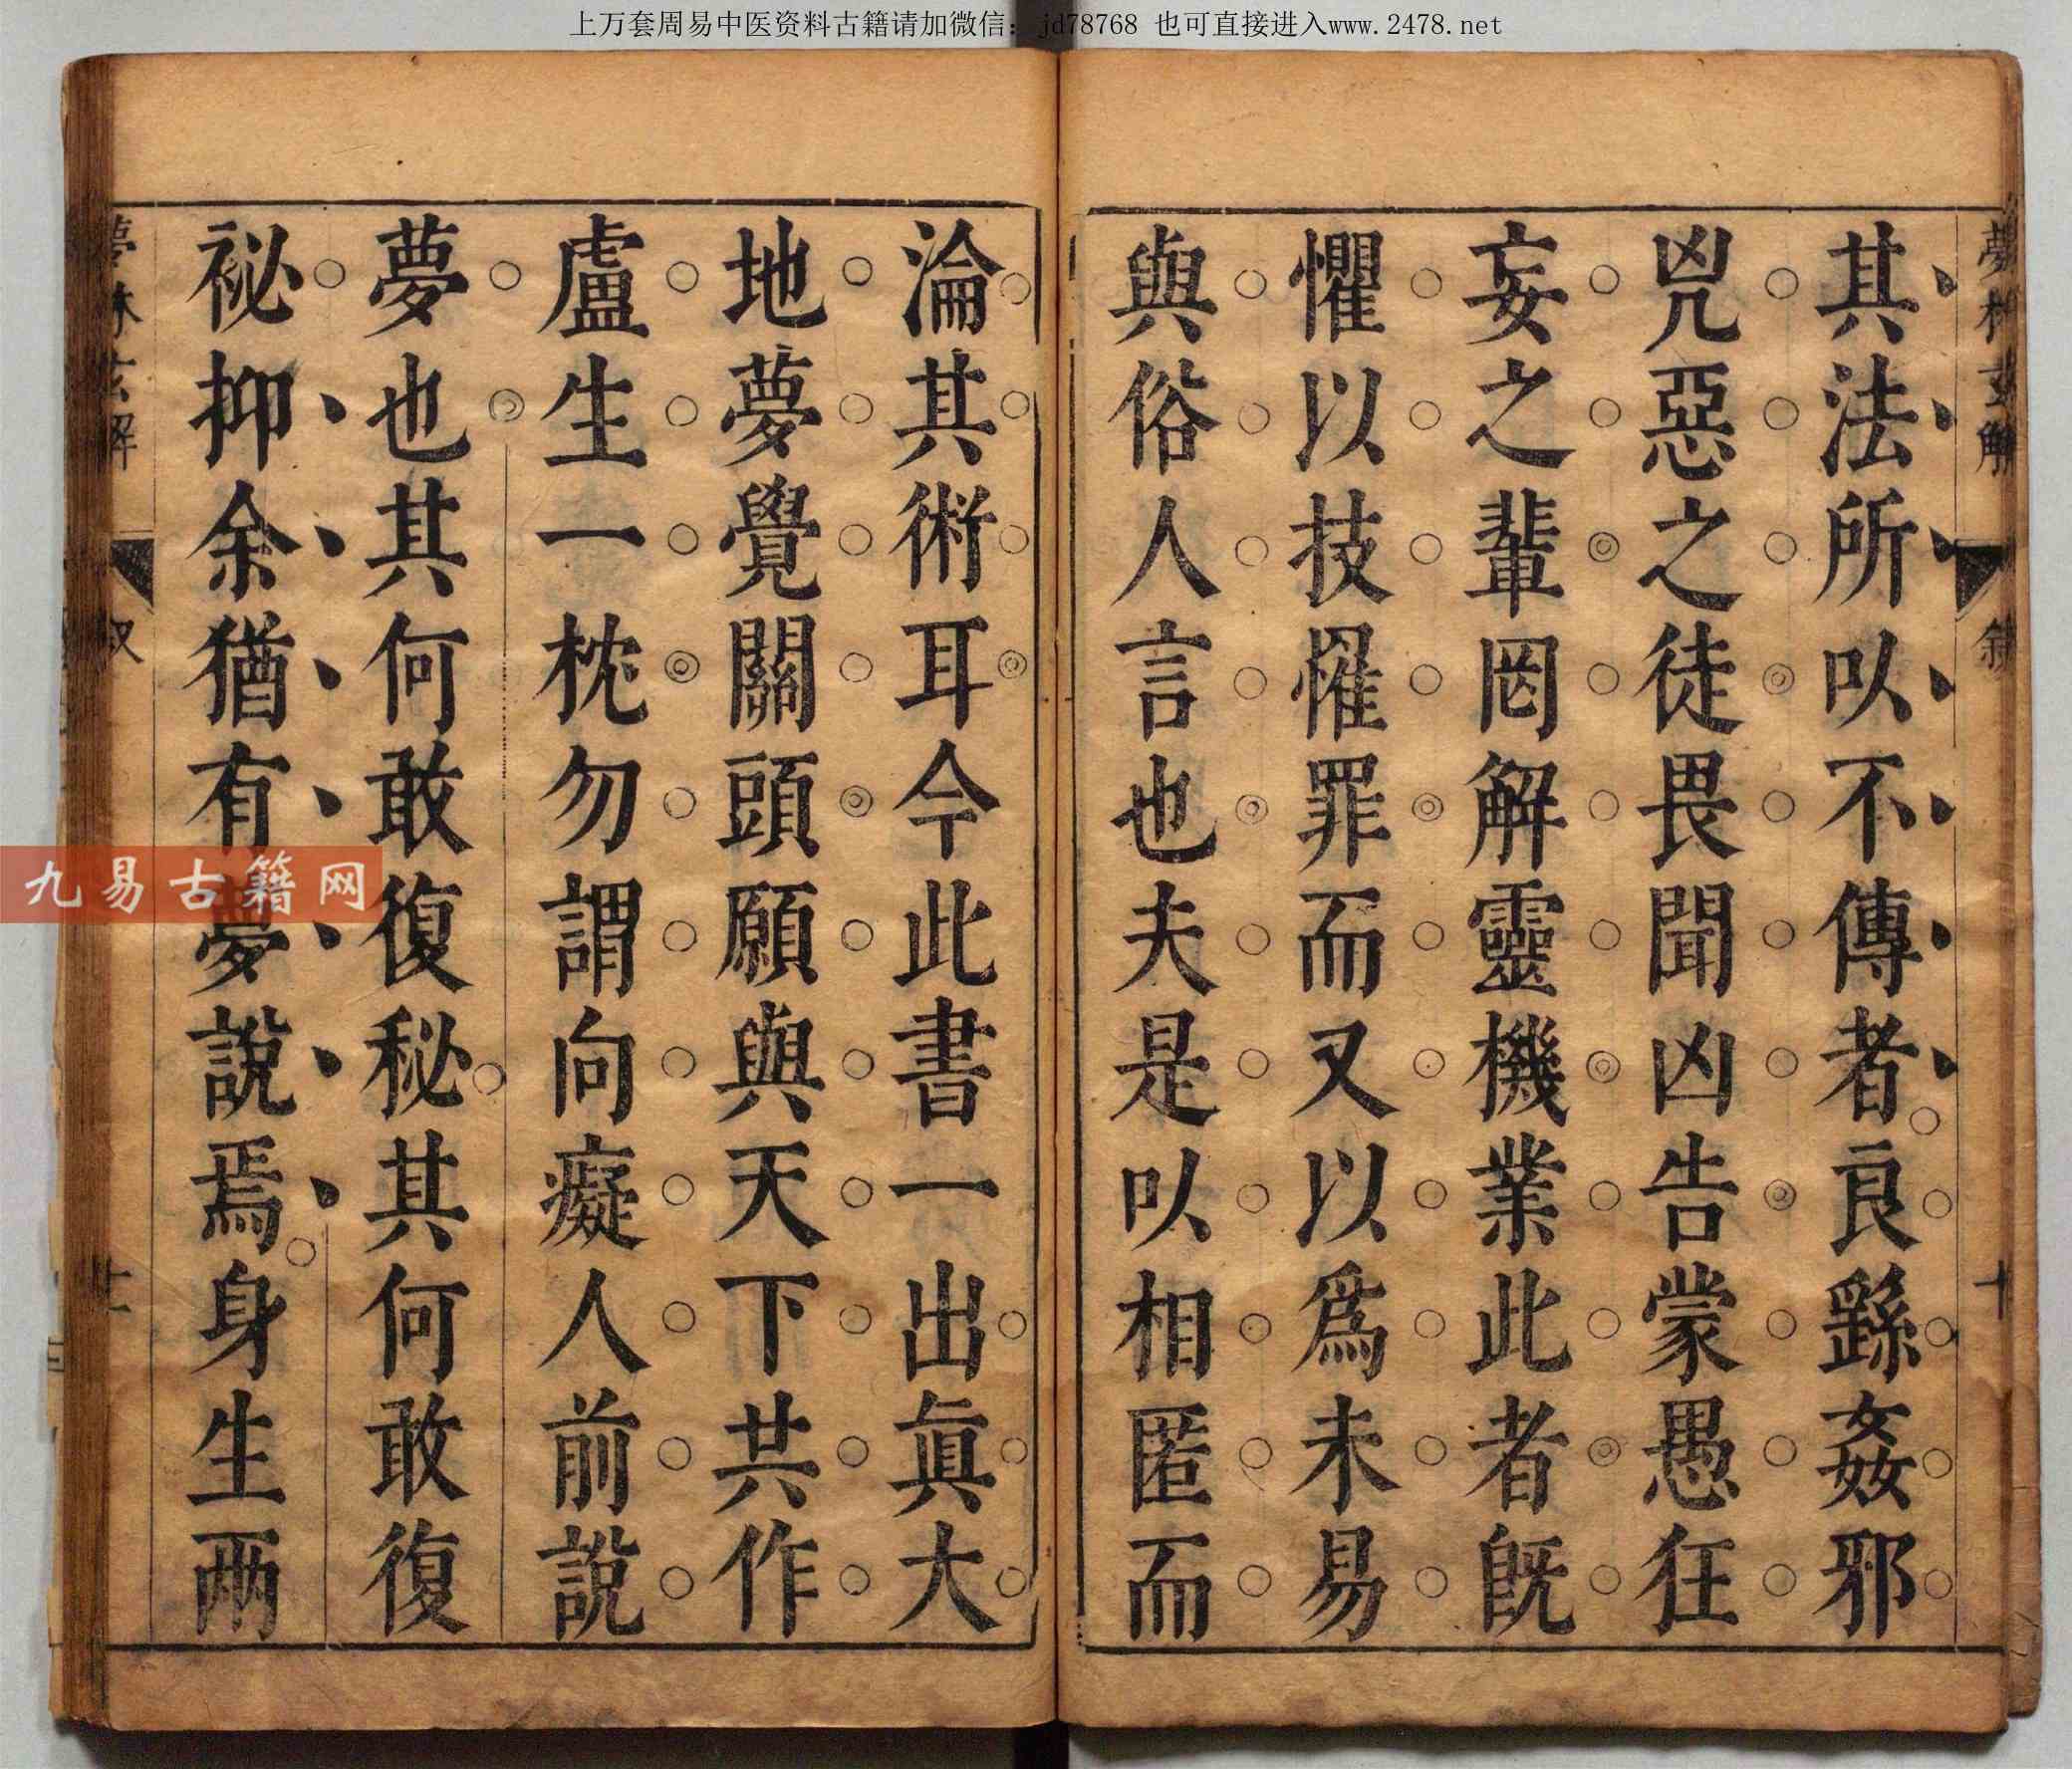 上万套周易中医资料古籍请加微信：jd78768 也可直接进入www.2478.net
夢林玄解 敘 十
其法所以不傳者良繇姦邪
兇惡之徒畏聞凶告蒙愚狂
妄之輩罔解靈機業此者既
懼以技罹罪而又以爲未易
與俗人言也夫是以相匿而
淪其術耳今此書一出眞大
地夢覺關頭願與天下共作
盧生一枕勿謂向癡人前說
夢也其何敢復秘其何敢復
祕抑余猶有夢說焉身生兩
夢林玄解 叙 十一
九易古籍网